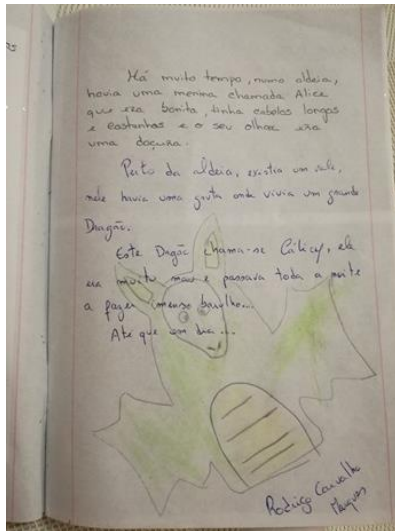 Há muito tempo, numa aldeia,
havia uma menina chamada Alice
que era bonita, tinha cabelos longos
e castanhos e o seu olhar era
uma doçura.
Perto da aldeia, existia um vale,
nele havia uma gruta onde vivia um grande
Dragão.
Este Dragão chama-se Cálicy, ele
era muito mau e passava toda a noite
a fazer imenso barulho...
Até que um dia...
Rodrigo Carvalho
Marques